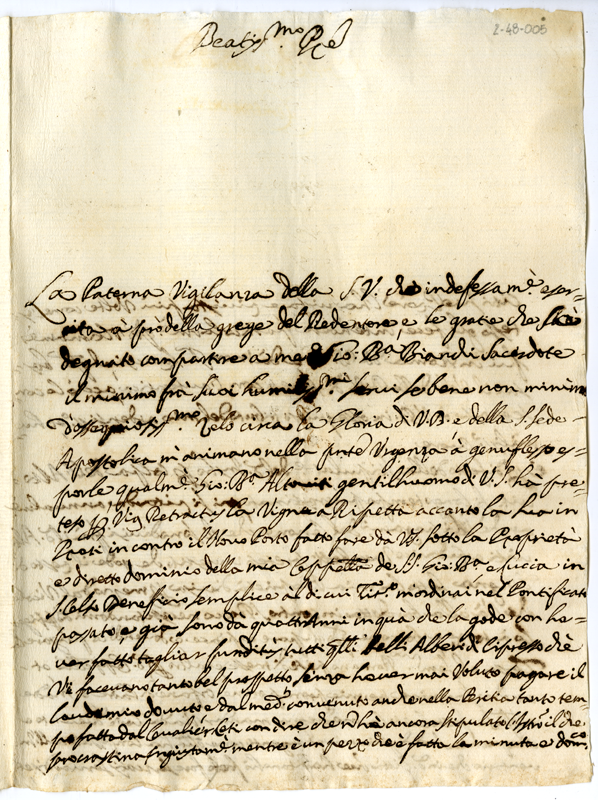 2-48-005
Beatiss.mo P̃re
La Paterna Vigilanza della S. V. che indefessam.e eser-
cita à prò della grege del Redentore, e le gratie che si è
degnato compartire a me Gio: B.a Biandi Sacerdote
il minimo frà suoi humiliss.mi servi se bene non minimo
d'ossequiosiss.mo zelo circa la Gloria di V. B. e della S. Sede
Apostolica m'animano nella pnte Urgenza à genuflesso es-
porle qualm.e Gio: B.a Altoviti gentilhuomo di V. S. hà pre-
teso Vig Retractus la Vigna a Ripetta accanto la sua in
Prati incontro il Novo Porto fatto fare da V. S. sotto la Proprietà
e diretto dominio della mia Cappella de SS. Gio: B.a in
S. Celso Beneficio semplice à di cui Tit.o m'ordinai nel Pontificato
passato e già sono da quattr'Anni in quà che la gode con ha-
ver fatto tagliar funditus tutti q̃lli belli Alberi di Cipresso che
Vi facevano tanto bel prospetto senza haver mai Voluto pagare il
laudemio dovuto e dal med.o convenuto anche nella Peritia tanto tem-
po fatta dal Cavalier Ceti con dire che nõ hà ancora stipulato l'Istr.o il che
procrastina ingiustam.e mentre è un pezzo che è fatta la minuta e